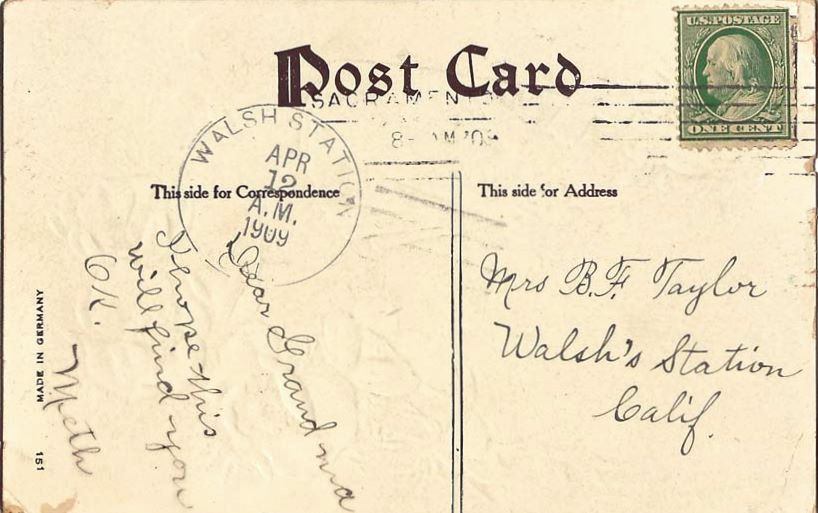 Post Card
U.S. POSTAGE
ONE CENT
SACRAMENTO
8- AM '09
WALSH STATION
APR
12
A.M.
1909
This side for Correspondence
This side for Address
Dear Grand ma
I hope this
will find you
OK.
Meth
Mrs B.F. Taylor
Walsh's Station
Calif.
MADE IN GERMANY
151